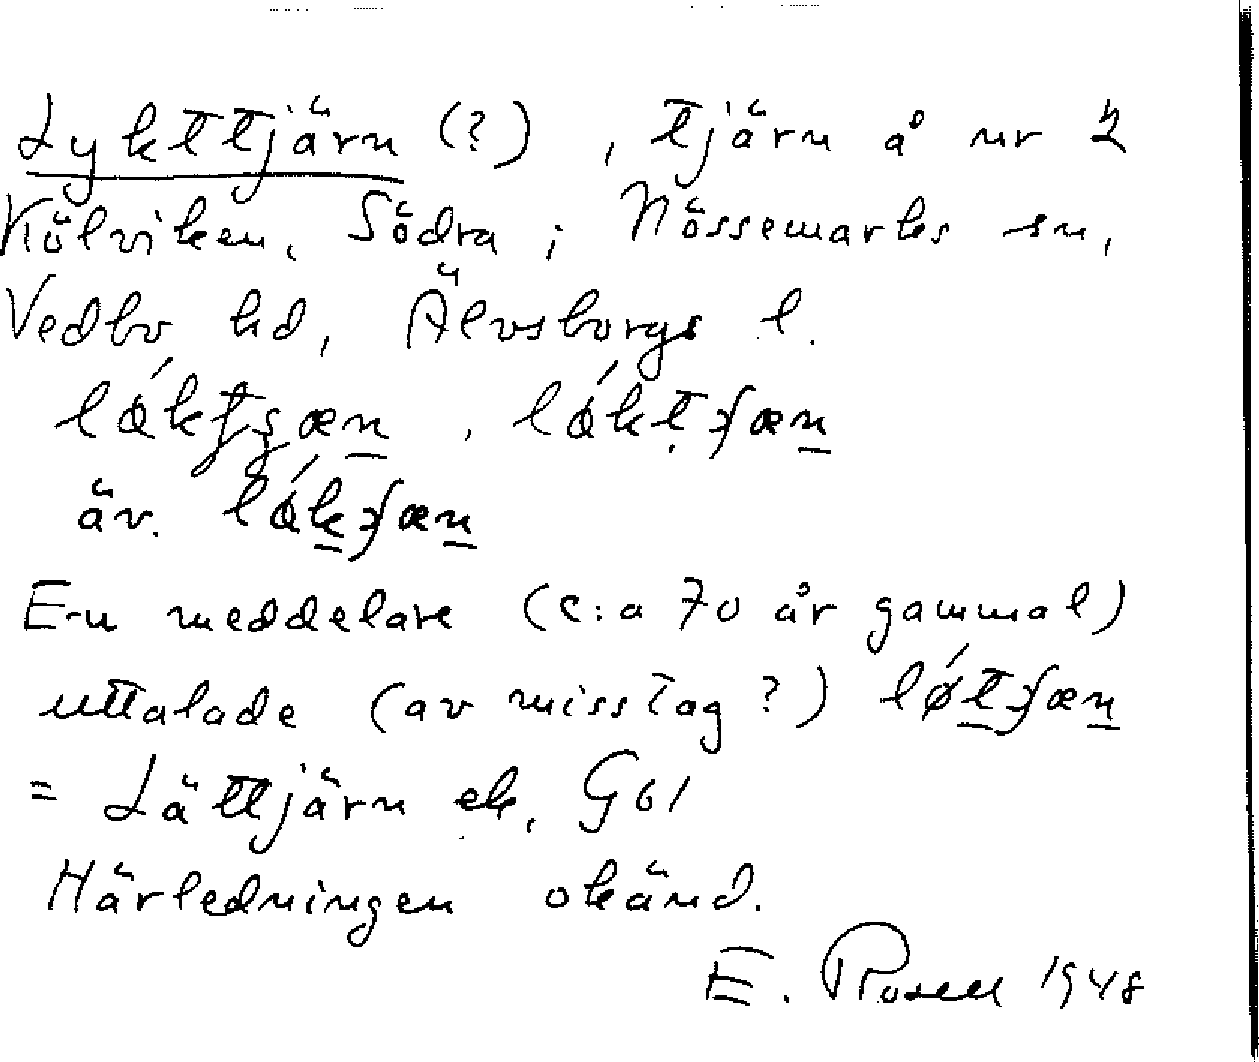 Lykttjärn (?), tjärn å nr 2
Kölviken, Södra; Nössemarks sn,
Vedbo hd, Älvsborgs l.
äv.
En meddelare (c:a 70 år gammal)
uttalade (av misstag?)
= Lättjärn ek. G61
Härledningen okänd.
E. Rosell 1948